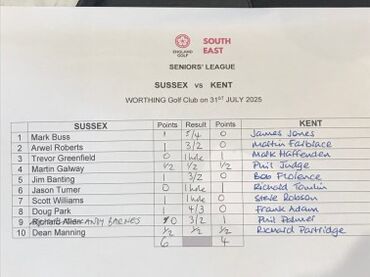 ENGLAND GOLF
SOUTH EAST
SENIORS' LEAGUE
SUSSEX vs KENT
WORTHING Golf Club on 31ST JULY 2025
SUSSEX Points Result Points KENT
1 Mark Buss 1 5/4 0 James Jones
2 Arwel Roberts 1 3/2 0 Martin Farblace
3 Trevor Greenfield 0 1 hole 1 Mark Haffenden
4 Martin Galway 1/2 1/2 1/2 Phil Judge
5 Jim Banting 1 3/2 0 Bob Florence
6 Jason Turner 0 1 hole 1 Richard Tomlin
7 Scott Williams 1 1 hole 0 Steve Robson
8 Doug Park 1 4/3 0 Frank Adam
9 BARNES 0 3/2 1 Phil Palmer
10 Dean Manning 1/2 1/2 1/2 Richard Partridge
6 4